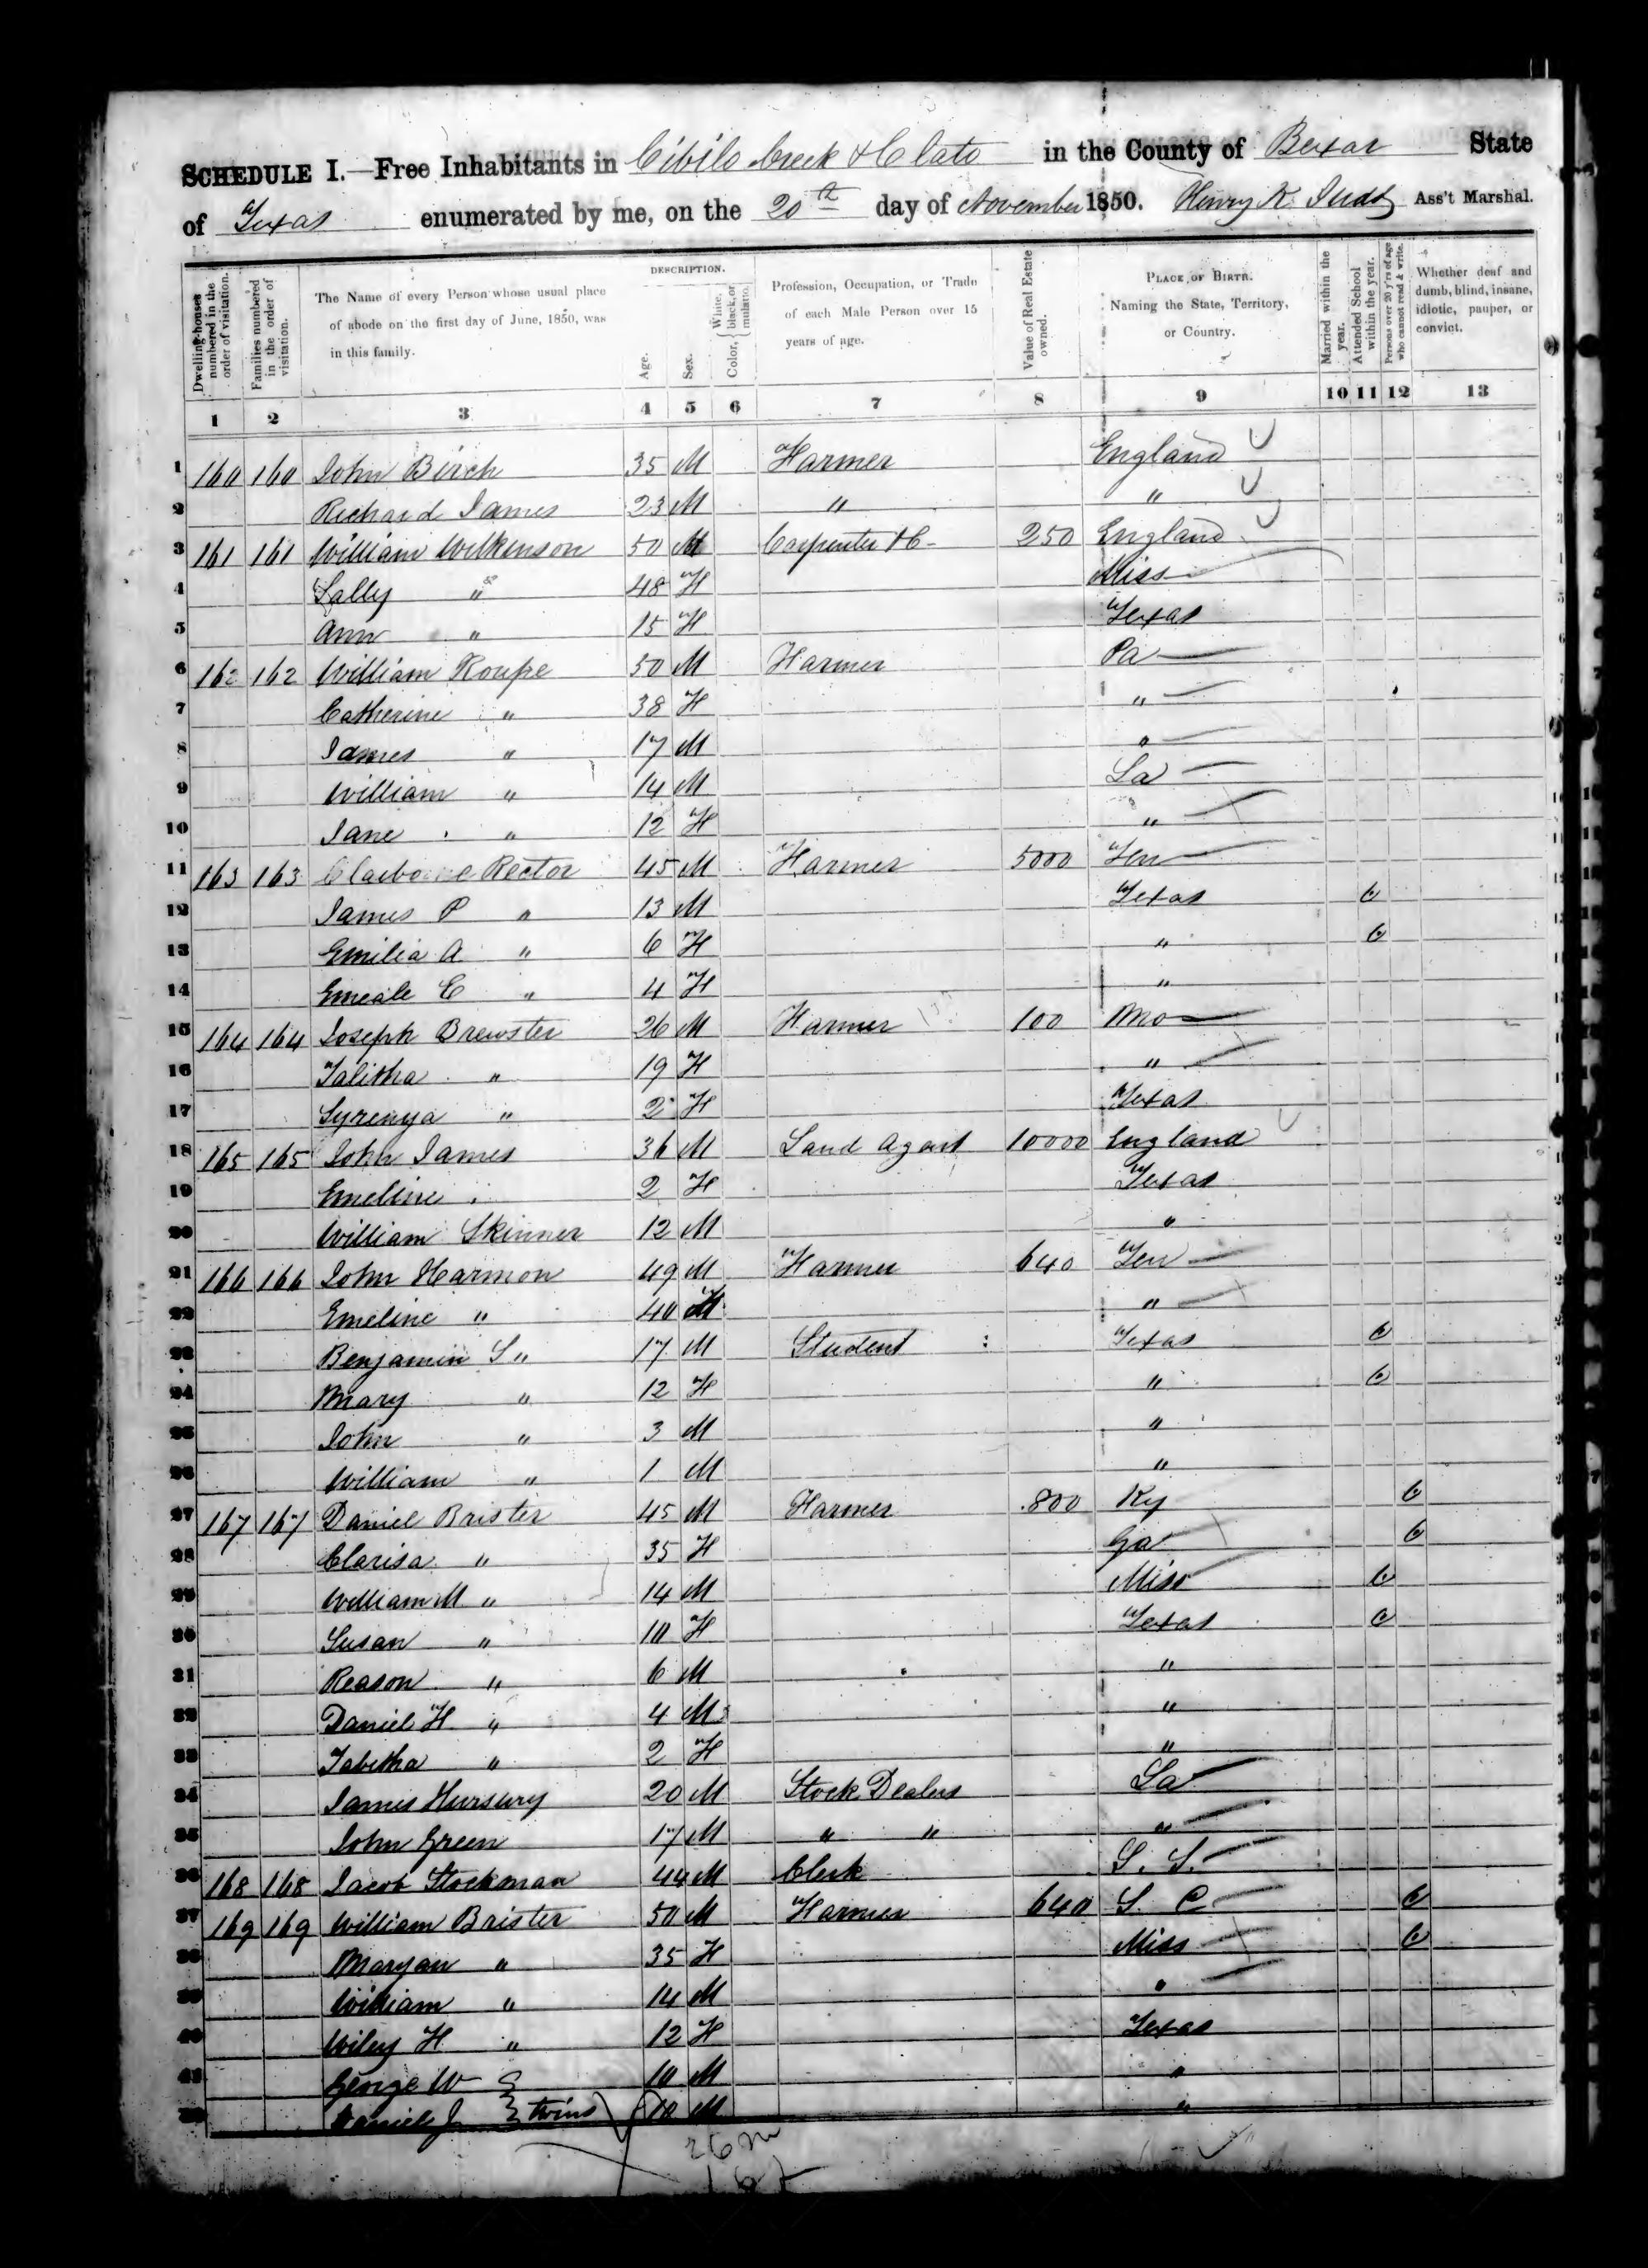 SCHEDULE I.—Free Inhabitants in Cibilo Creek & Clato in the County of Bexar State
of Texas enumerated by me, on the 20th day of November 1850. Henry K. Judd Ass't Marshal.
Dwelling-houses numbered in the order of visitation.
Families numbered in the order of visitation.
The Name of every Person whose usual place of abode on the first day of June, 1850, was in this family.
DESCRIPTION.
Age.
Sex.
Color, { White, black, or mulatto.
Profession, Occupation, or Trade of each Male Person over 15 years of age.
Value of Real Estate owned.
PLACE OF BIRTH. Naming the State, Territory, or Country.
Married within the year.
Attended School within the year.
Persons over 20 y'rs of age who cannot read & write.
Whether deaf and dumb, blind, insane, idiotic, pauper, or convict.
1 2 3 4 5 6 7 8 9 10 11 12 13
1 160 160 John Birch 35 M Farmer England
2 Richard James 23 M " "
3 161 161 William Wilkinson 50 M Carpenter &C 250 England
4 Sally " 48 F Miss
5 Ann " 15 F Texas
6 162 162 William Roupe 50 M Farmer Pa
7 Catherine " 38 F "
8 James " 17 M "
9 William " 14 M La
10 Jane " 12 F "
11 163 163 Claiborne Rector 45 M Farmer 5000 Ten
12 James P " 13 M Texas
13 Emilia A " 6 F "
14 Emeale C " 4 F "
15 164 164 Joseph Brewster 26 M Farmer 100 Mo
16 Talitha " 19 F "
17 Syrenya " 2 F Texas
18 165 165 John James 36 M Land Agent 10000 England
19 Emeline " 2 F Texas
20 William Skinner 12 M "
21 166 166 John Harmon 49 M Farmer 640 Ten
22 Emeline " 40 F "
23 Benjamin S " 17 M Student Texas
24 Mary " 12 F "
25 John " 3 M "
26 William " 1 M "
27 167 167 Daniel Brister 45 M Farmer 800 Ky
28 Clarisa " 35 F Ga
29 William M " 14 M Miss
30 Susan " 10 F Texas
31 Reason " 6 M "
32 Daniel H " 4 M "
33 Tabitha " 2 F "
34 James 20 M Stock Dealers La
35 John Green 17 M " " "
36 168 168 Jacob Stockman 44 M Clerk
37 169 169 William Brister 50 M Farmer 640 S. C
38 Maryan " 35 F Miss
39 William " 14 M "
40 Wiley H " 12 F Texas
41 George W 10 M "
Daniel J } twins 10 M "
26 m